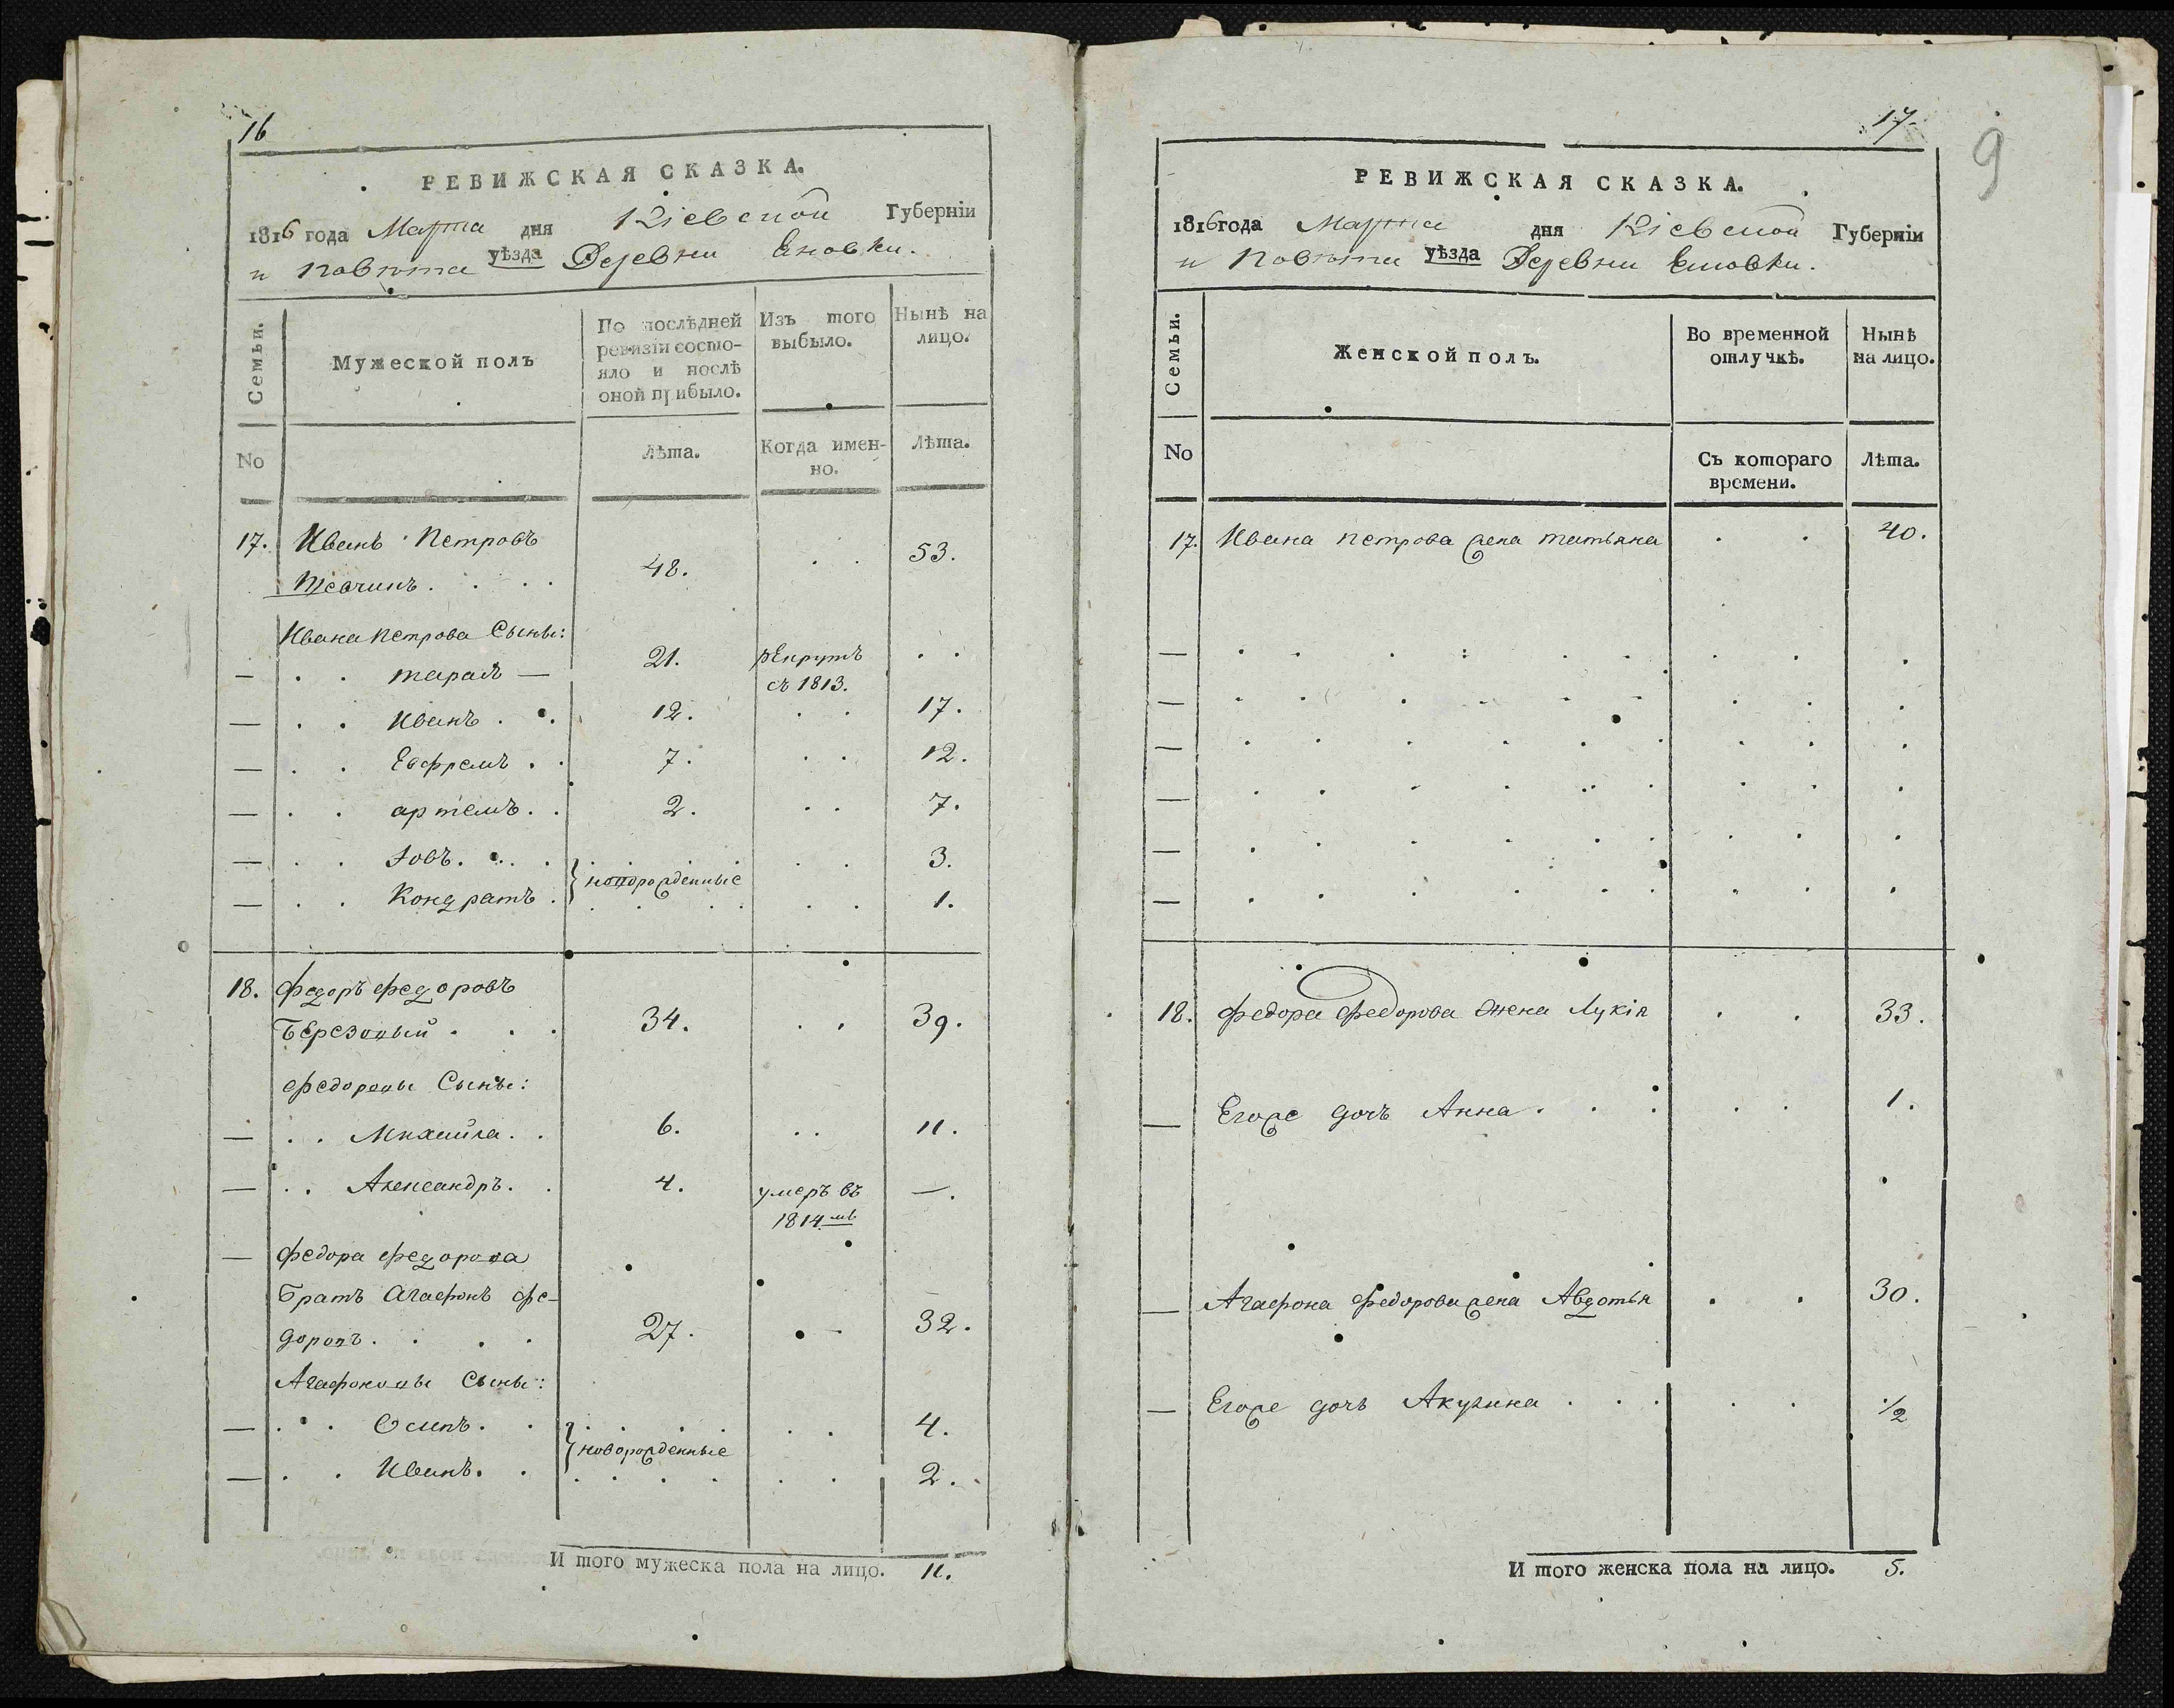 16
РЕВИЖСКАЯ СКАЗКА.
1816 года Марта дня Кіевской Губерніи
и Повѣта уѣзда Деревни Еновки.
Семьи.
Мужеской полъ
По послѣдней ревизіи состо-
яло и послѣ оной прибыло.
Изъ того выбыло.
Нынѣ на лицо.
No
Лѣта.
Когда имен-
но.
Лѣта.
17. Иванъ Петровъ
48. 53.
Ивана Петрова Сыны:
— тарасъ — 21. рекрутъ
съ 1813.
— Иванъ. 12. 17.
— Евфремъ. 7. 12.
— артемъ. 2. 7.
— Іовъ. 3.
новорожденные
— Кондратъ. 1.
18. Федоръ Федоровъ
Березовый 34. 39.
Федоровы Сыны:
— Михайла. 6. 11.
— Александръ. 4. умеръ въ —.
1814мъ
— Федора Федорова
Братъ Агафонъ Фе-
доровъ. 27. 32.
Агафоновы Сыны:
— Осипъ. 4.
новорожденные
— Иванъ. 2.
И того мужеска пола на лицо. 11.
17.
9
РЕВИЖСКАЯ СКАЗКА.
1816 года Марта дня Кіевской Губерніи
и Повѣта уѣзда Деревни Еновки.
Семьи.
Женской полъ.
Во временной отлучкѣ.
Нынѣ на лицо.
No
Съ котораго времени.
Лѣта.
17. Ивана Петрова жена татьяна 40.
—
—
—
—
—
—
18. Федора Федорова жена Лукія 33.
— Егоже дочъ Анна. 1.
— Агафона Федорова жена Авдотья 30.
— Егоже дочь Акулина 1/2
И того женска пола на лицо. 5.